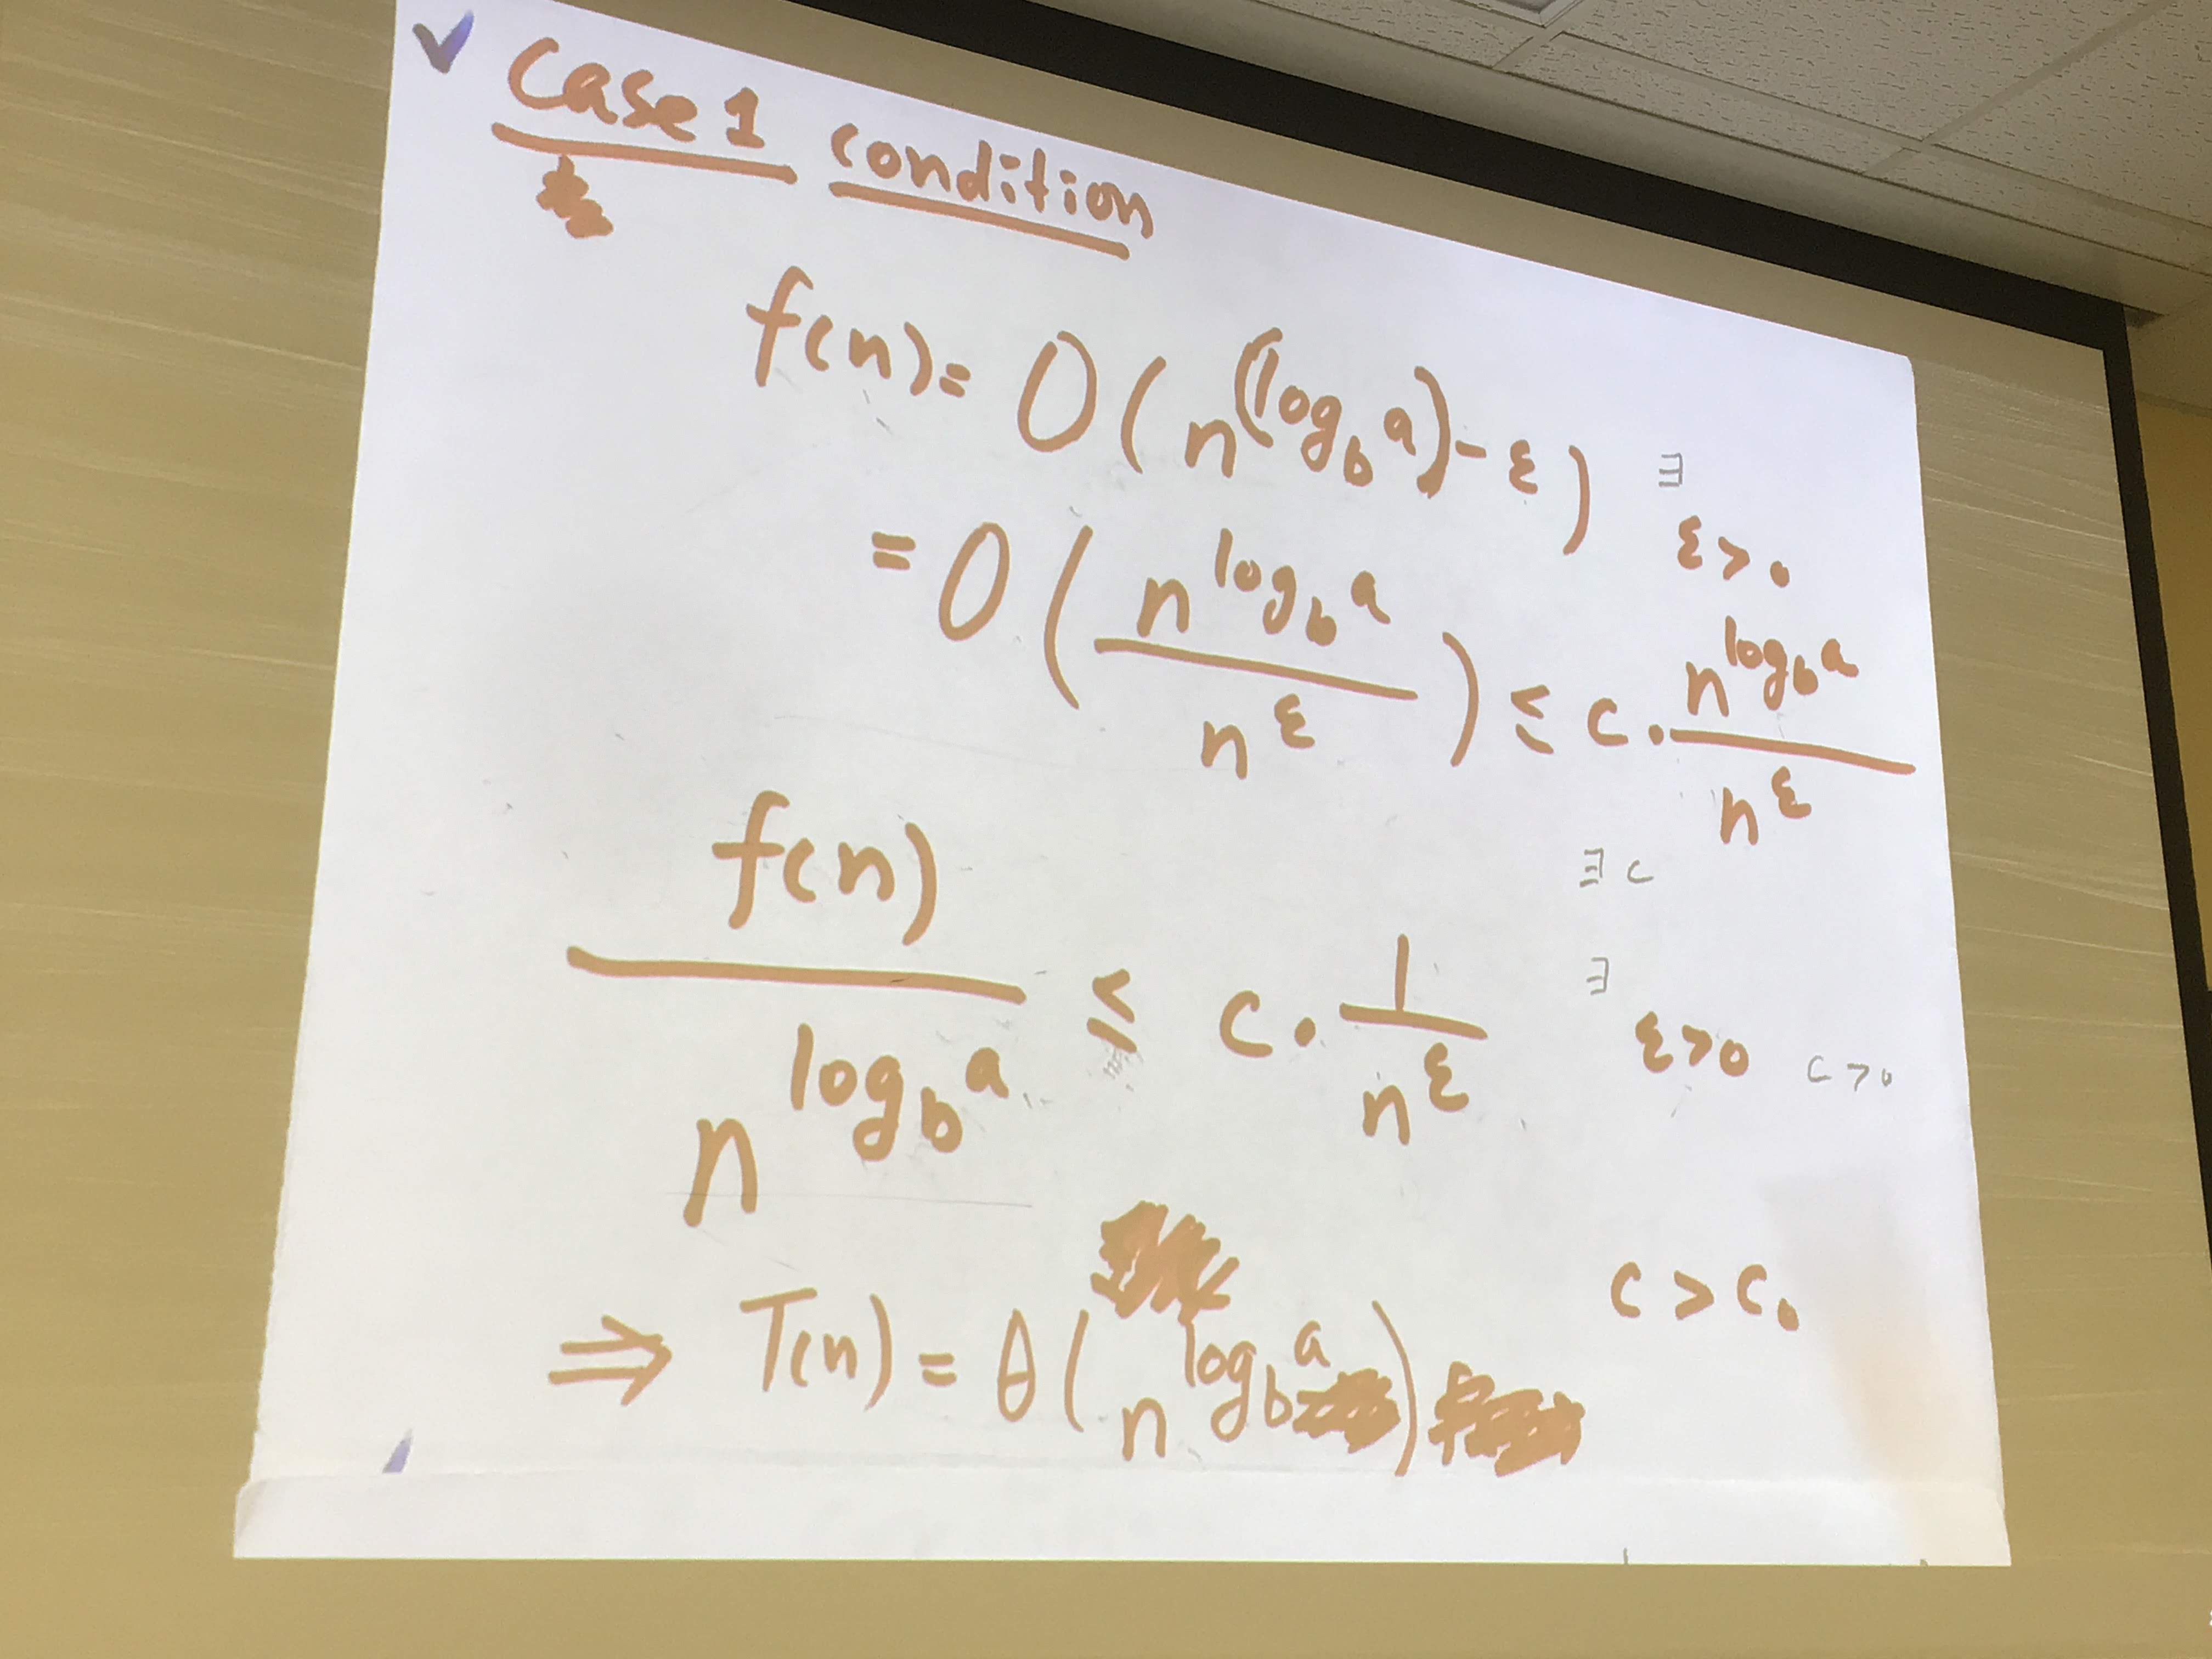 ✓ Case 1 condition
f(n) = O(n^((log_b a) - ε)) ∃ ε > 0
= O(n^(log_b a) / n^ε) ≤ c · n^(log_b a) / n^ε
∃ c
f(n) / n^(log_b a) ≤ c · 1 / n^ε ∃ ε > 0 c > 0
c > c₀
⇒ T(n) = θ(n^(log_b a))